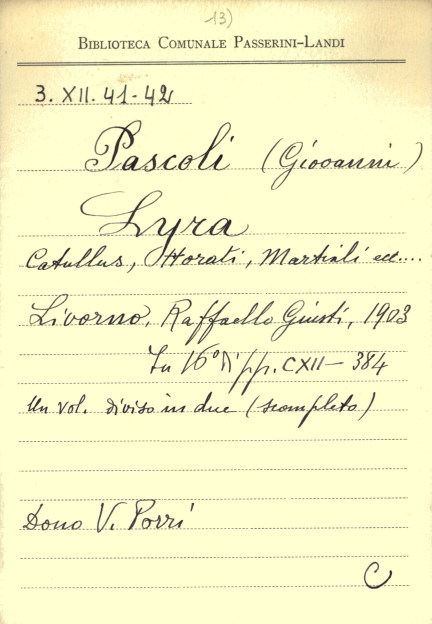 13)
BIBLIOTECA COMUNALE PASSERINI-LANDI
3. XII. 41-42
Pascoli (Giovanni)
Lyra
Catullus, Horati, Martiali ecc....
Livorno, Raffaello Giusti, 1903
In 16° di pp. CXII - 384
Un vol. diviso in due (scompleto)
Dono V. Porri
C